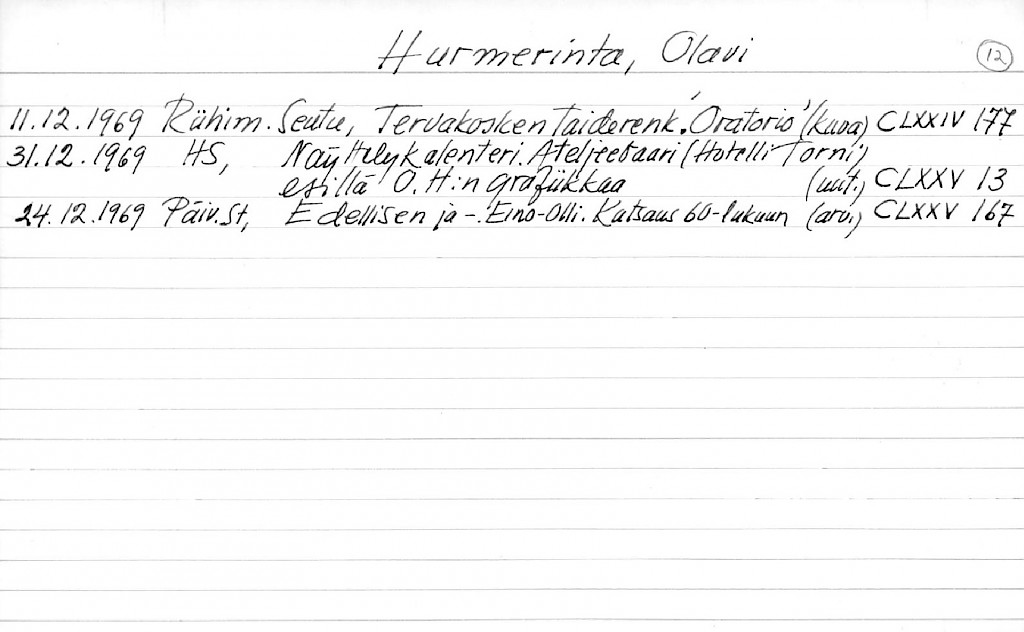 Hurmerinta, Olavi 12
11.12.1969 Riihim. Seutu, Tervakosken Taiderenk. 'Oratorio' (kuva) CLXXIV 177
31.12.1969 HS, Näyttelykalenteri. Ateljeebaari (Hotelli Torni)
esillä O.H:n grafiikkaa (uut.) CLXXV 13
24.12.1969 Päiv.St, Edellisen ja -. Eino-Olli. Katsaus 60-lukuun (arv.) CLXXV 167